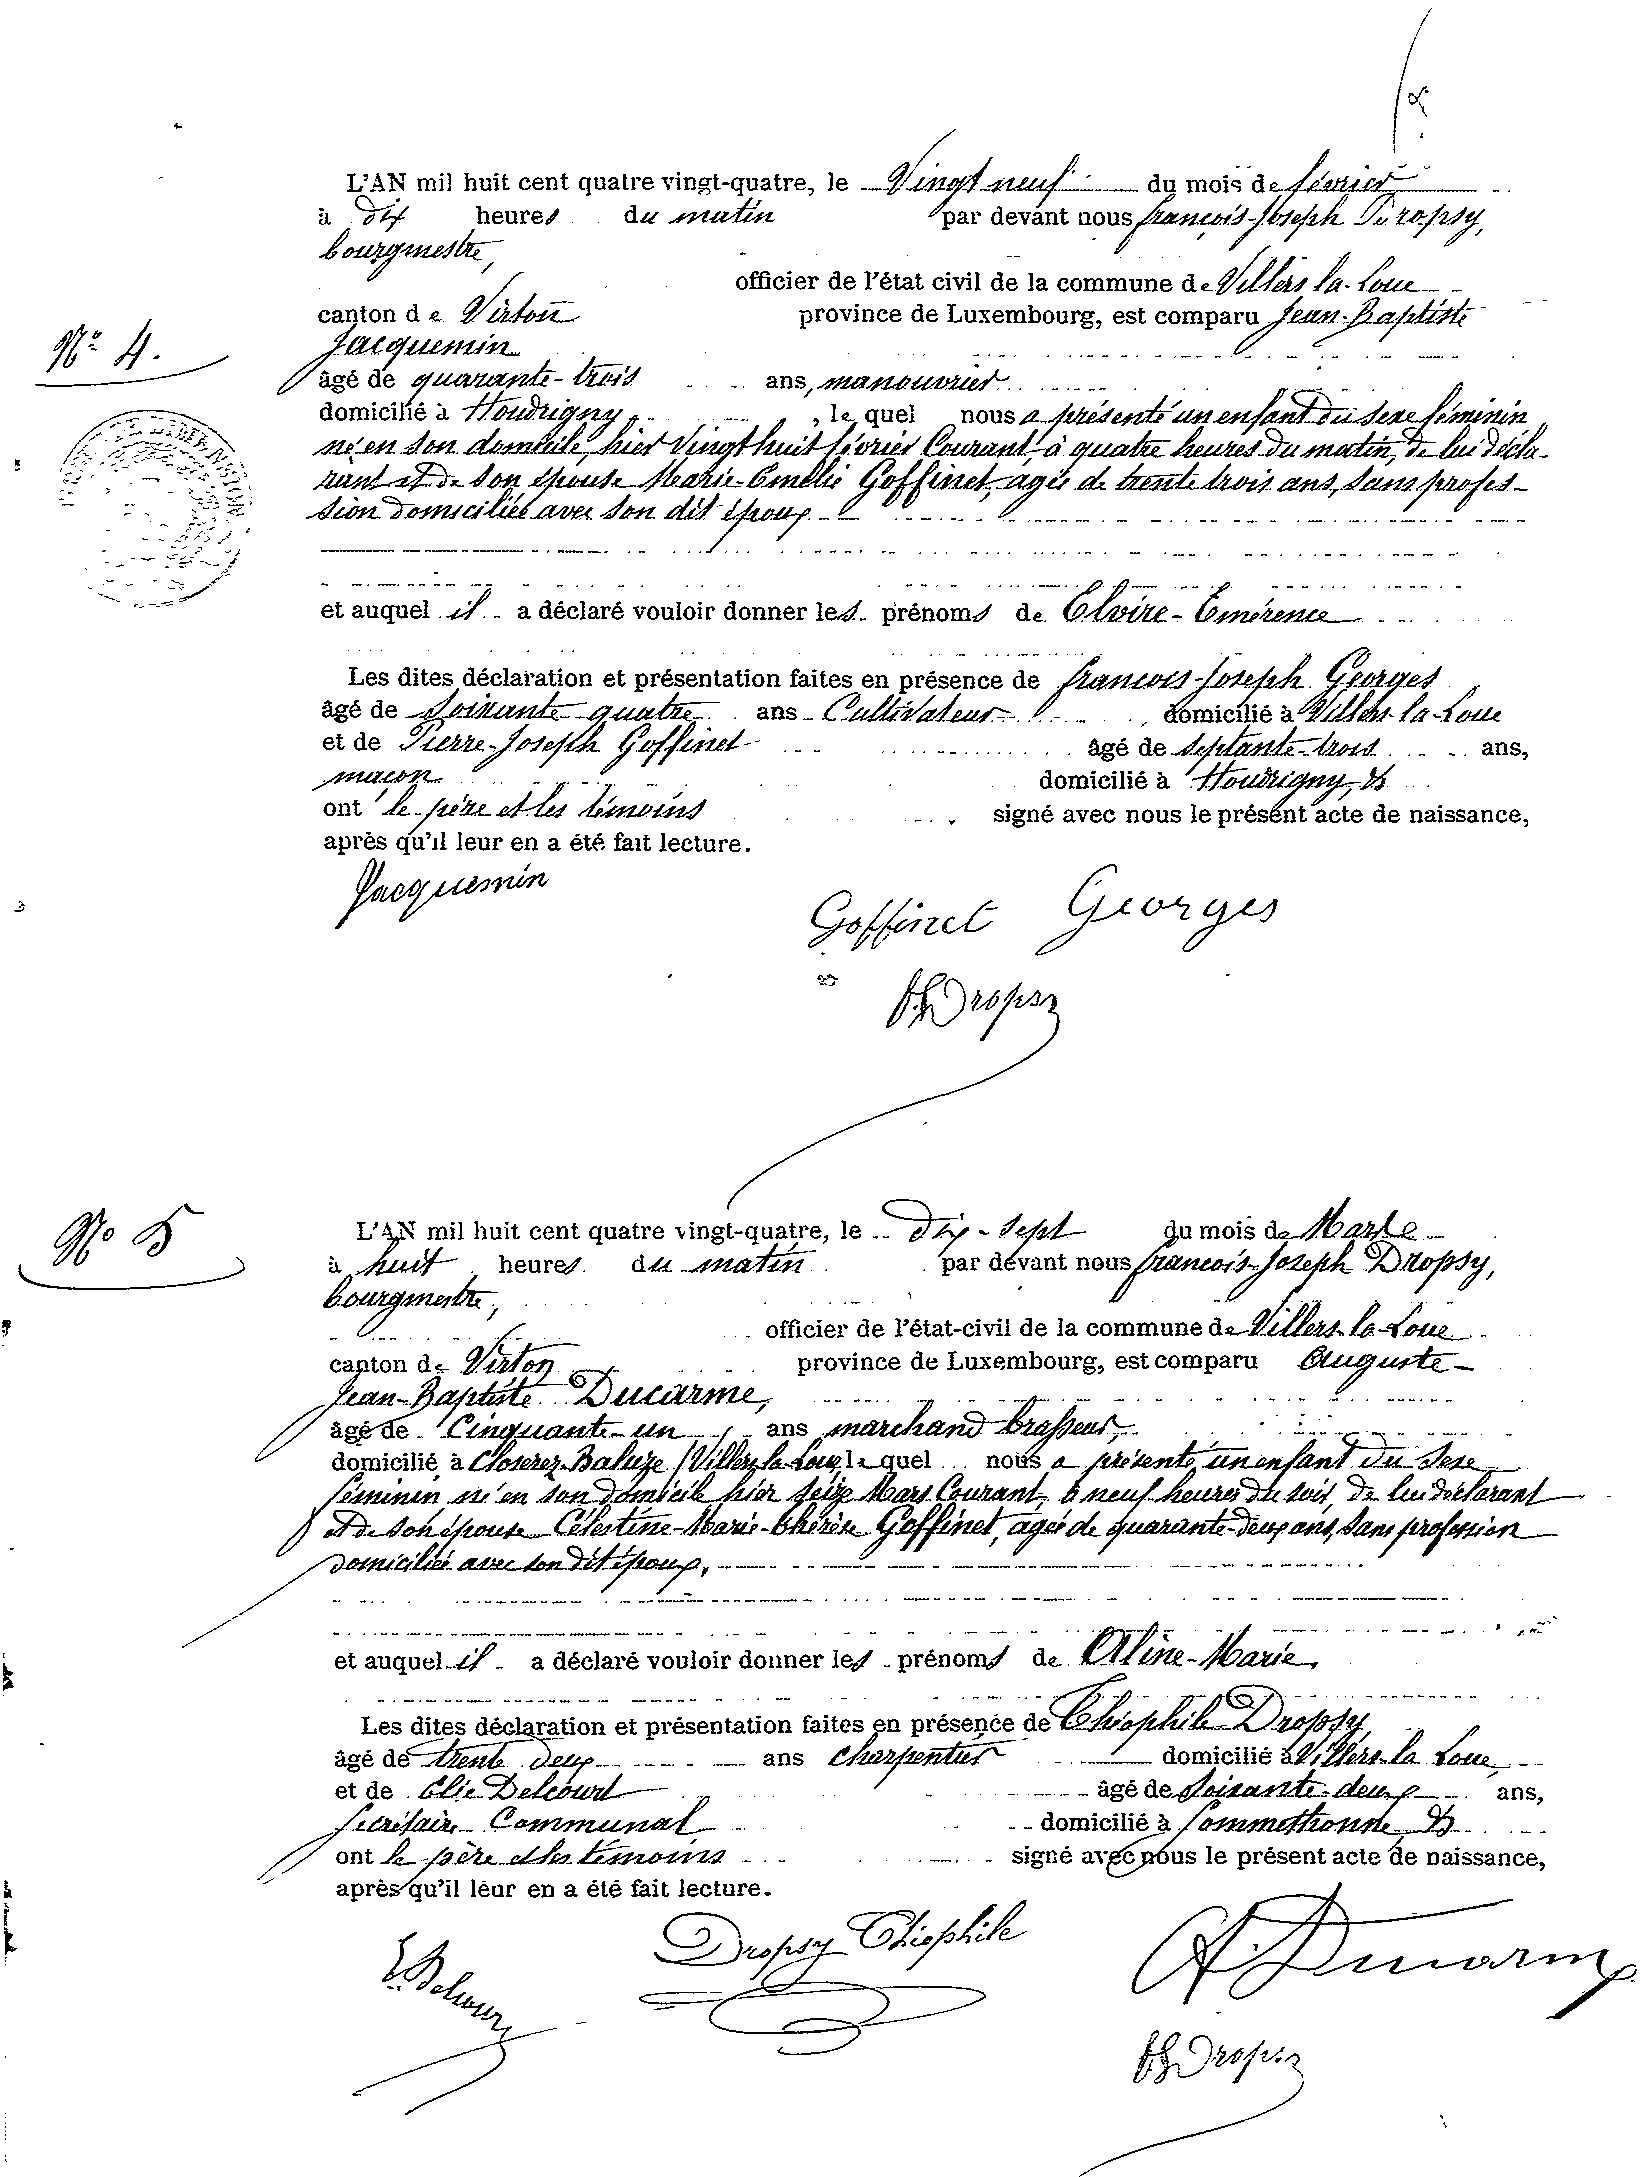 L'AN mil huit cent quatre vingt-quatre, le Vingt neuf du mois de février
à dix heures du matin par devant nous françois-Joseph Dropsy,
bourgmestre,
officier de l'état civil de la commune de Villers-la-Loue
canton de Virton province de Luxembourg, est comparu Jean-Baptiste
N° 4.
Jacquemin
âgé de quarante-trois ans, manouvrier
domicilié à Houdrigny, le quel nous a présenté un enfant du sexe féminin
né en son domicile, hier Vingt huit février Courant, à quatre heures du matin, de lui décla-
rant et de son épouse Marie-Emélie Goffinet, agée de trente trois ans, sans profes-
sion domiciliée avec son dit époux
et auquel il a déclaré vouloir donner les prénoms de Elvire-Emérence
Les dites déclaration et présentation faites en présence de francois-Joseph Georges
âgé de Soixante quatre ans Cultivateur domicilié à Villers-la-Loue
et de Pierre-Joseph Goffinet âgé de septante-trois ans,
maçon domicilié à Houdrigny, &
ont le père et les témoins signé avec nous le présent acte de naissance,
après qu'il leur en a été fait lecture.
Jacquemin
Goffinet Georges
fJDropsy
N° 5
L'AN mil huit cent quatre vingt-quatre, le dix-sept du mois de Mars
à huit heures du matin par devant nous francois-Joseph Dropsy,
bourgmestre,
officier de l'état-civil de la commune de Villers-la-Loue
canton de Virton province de Luxembourg, est comparu Auguste-
Jean-Baptiste Ducarme,
âgé de Cinquante-un ans marchand brasseur,
domicilié à /Villers-la-Loue, le quel nous a présenté un enfant du sexe
féminin, né en son domicile hier seize Mars Courant, à neuf heures du soir, de lui déclarant
et de son épouse Célestine-Marie-thérèse Goffinet, agée de quarante-deux ans, sans profession
domiciliée avec son dit époux,
et auquel il a déclaré vouloir donner les prénoms de Aline-Marie,
Les dites déclaration et présentation faites en présence de Théophile Dropsy,
âgé de trente deux ans charpentier domicilié à Villers-la Loue,
et de Elie Delcourt âgé de Soixante-deux ans,
Secrétaire Communal domicilié à Sommethonne &
ont le père et les témoins signé avec nous le présent acte de naissance,
après qu'il leur en a été fait lecture.
E. Delcourt Dropsy Théophile A. Ducarme
fJDropsy